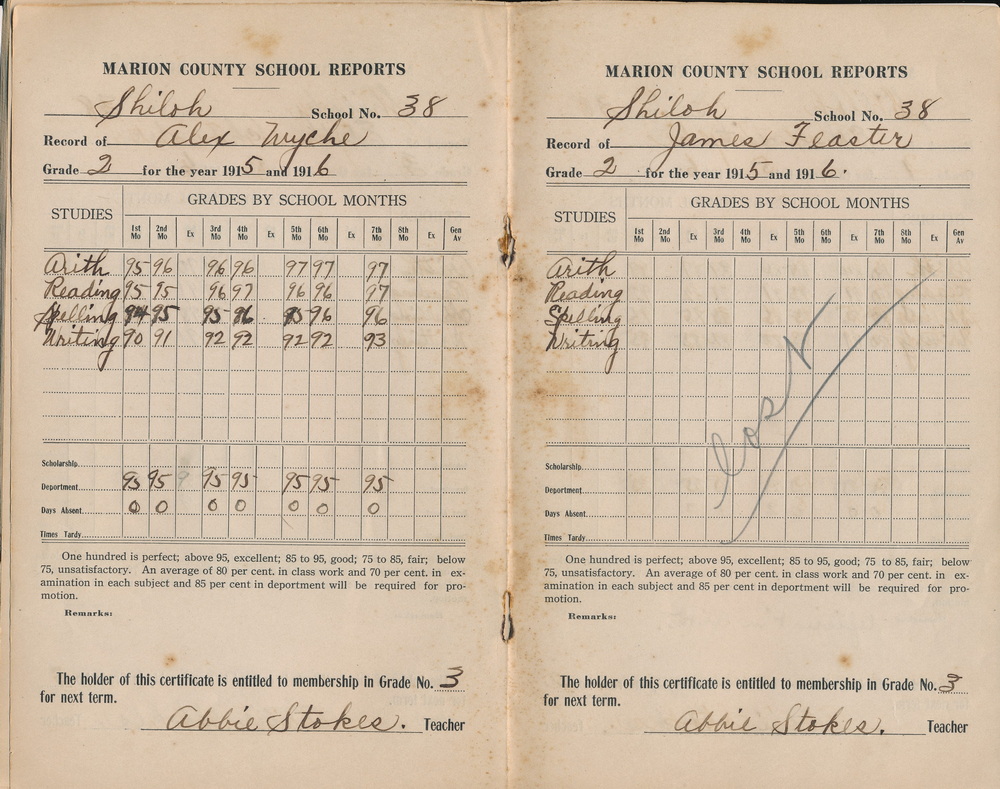 MARION COUNTY SCHOOL REPORTS
Shiloh School No. 38
Record of Alex Wyche
Grade 2 for the year 1915 and 1916
STUDIES GRADES BY SCHOOL MONTHS
1st Mo 2nd Mo Ex 3rd Mo 4th Mo Ex 5th Mo 6th Mo Ex 7th Mo 8th Mo Ex Gen Av
Arith 95 96 96 96 97 97 97
Reading 95 95 96 97 96 96 97
Spelling 94 95 95 96 95 96 96
Writing 90 91 92 92 92 92 93
Scholarship
Department 95 95 95 95 95 95 95
Days Absent 0 0 0 0 0 0 0
Times Tardy
One hundred is perfect; above 95, excellent; 85 to 95, good; 75 to 85, fair; below
75, unsatisfactory. An average of 80 per cent. in class work and 70 per cent. in ex-
amination in each subject and 85 per cent in deportment will be required for pro-
motion.
Remarks:
The holder of this certificate is entitled to membership in Grade No. 3
for next term.
Abbie Stokes. Teacher
MARION COUNTY SCHOOL REPORTS
Shiloh School No. 38
Record of James Feaster
Grade 2 for the year 1915 and 1916.
STUDIES GRADES BY SCHOOL MONTHS
1st Mo 2nd Mo Ex 3rd Mo 4th Mo Ex 5th Mo 6th Mo Ex 7th Mo 8th Mo Ex Gen Av
Arith
Reading
Spelling
Writing
Scholarship
Department
Days Absent
Times Tardy
One hundred is perfect; above 95, excellent; 85 to 95, good; 75 to 85, fair; below
75, unsatisfactory. An average of 80 per cent. in class work and 70 per cent. in ex-
amination in each subject and 85 per cent in deportment will be required for pro-
motion.
Remarks:
The holder of this certificate is entitled to membership in Grade No. 3
for next term.
Abbie Stokes. Teacher